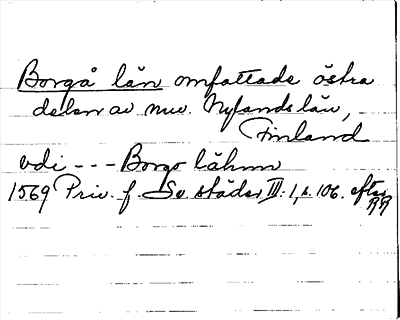 Borgå län omfattade östra
delen av nuv. Nylands län,
Finland
vdi --- Borgo lähnn
1569 Priv. f. Sv städer III: 1, s. 106. efter
RR